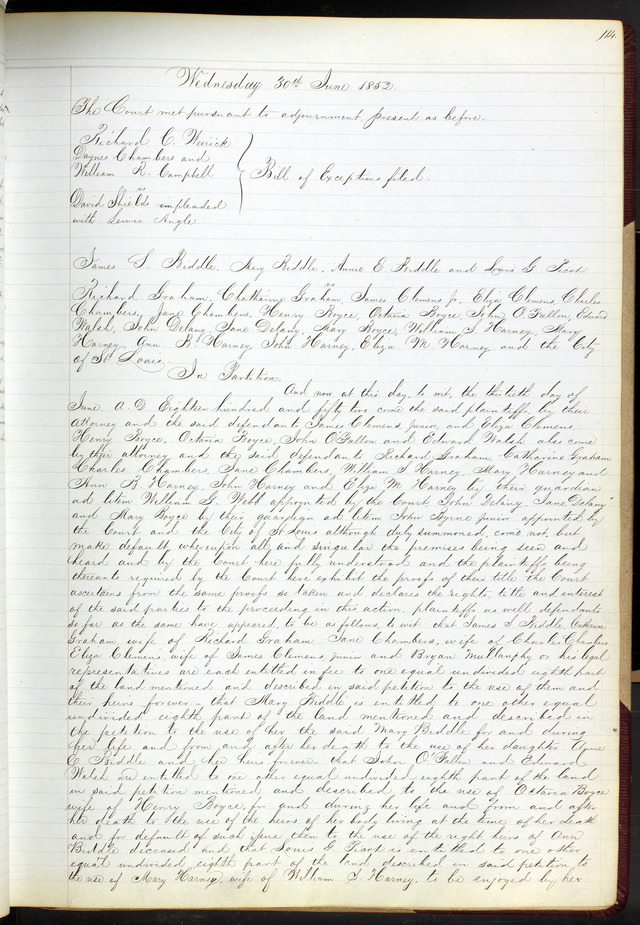 114.
Wednesday 30th June 1852.
The Court met pursuant to adjournment, present as before.
Richard C. Weirick
Daynes Chambers and
William R. Campbell
vs
Bill of Exceptions filed.
David Shields impleaded
with Lewis Angle
James S. Biddle. Mary Biddle, Annie E. Biddle and Louis G. Picot
vs
Richard Graham, Chatharine Graham, James Clemens jr. Eliza Clemens, Charles
Chambers, Jane Chambers, Henry Boyce, Octavia Boyce John O'Fallon, Edward
Walsh, John Delany, Jane Delany, Mary Boyce, William S Harney, Mary
Harney, Ann B. Harney, John Harney, Eliza M. Harney and the City
of St Louis.
In Partition.
And now at this day, to wit, the thirtieth day of
June A.D. Eighteen hundred and fifty two come the said plaintiffs, by their
attorney and the said defendants James Clemens junior, and Eliza Clemens,
Henry Boyce, Octavia Boyce, John O'Fallon and Edward Walsh also come
by their attorney and the said defendants Richard Graham, Catharine Graham
Charles Chambers, Jane Chambers, William S Harney, Mary Harney and
Ann B. Harney, John Harney and Eliza M. Harney by their guardian
ad litem William G. Webb appointed by the Court, John Delany, Jane Delany
and Mary Boyce by their guardian ad litem John Byrne junior appointed by
the Court and the City of St Louis although duly summoned, come not, but
make default, whereupon all and singular the premises being seen and
heard and by the Court here fully understood and the plaintiffs being
thereunto required by the Court here exhibit the proofs of their title the Court
ascertains from the same proofs so taken and declares the rights, title and interest
of the said parties to the proceeding in this action, plaintiffs as well defendants
so far as the same have appeared, to be as follows, to wit: that James S Biddle, Catharine
Graham, wife of Richard Graham Jane Chambers, wife of Charles Chambers
Eliza Clemens, wife of James Clemens junior and Bryan Mullanphy or his legal
representatives are each entitled in fee to one equal undivided eighth part
of the land mentioned and described in said petition to the use of them and
their heirs forever - that Mary Biddle is entitled to one other equal
undivided eighth part of the land mentioned and described in
the petition to the use of her the said Mary Biddle for and during
her life and from and after her death to the use of her daughter Annie
E Biddle and her heirs forever - that John O'Fallon and Edward
Walsh are entitled to one other equal undivided eighth part of the land
in said petition mentioned and described to the use of Octavia Boyce
wife of Henry Boyce, for and during her life and from and after
her death to the use of the heirs of her body living at the time of her death
and for default of such issue then to the use of the right heirs of Ann
Biddle deceased and that Louis G Picot is entitled to one other
equal undivided eighth part of the land described in said petition, to
the use of Mary Harney, wife of William S Harney, to be enjoyed by her